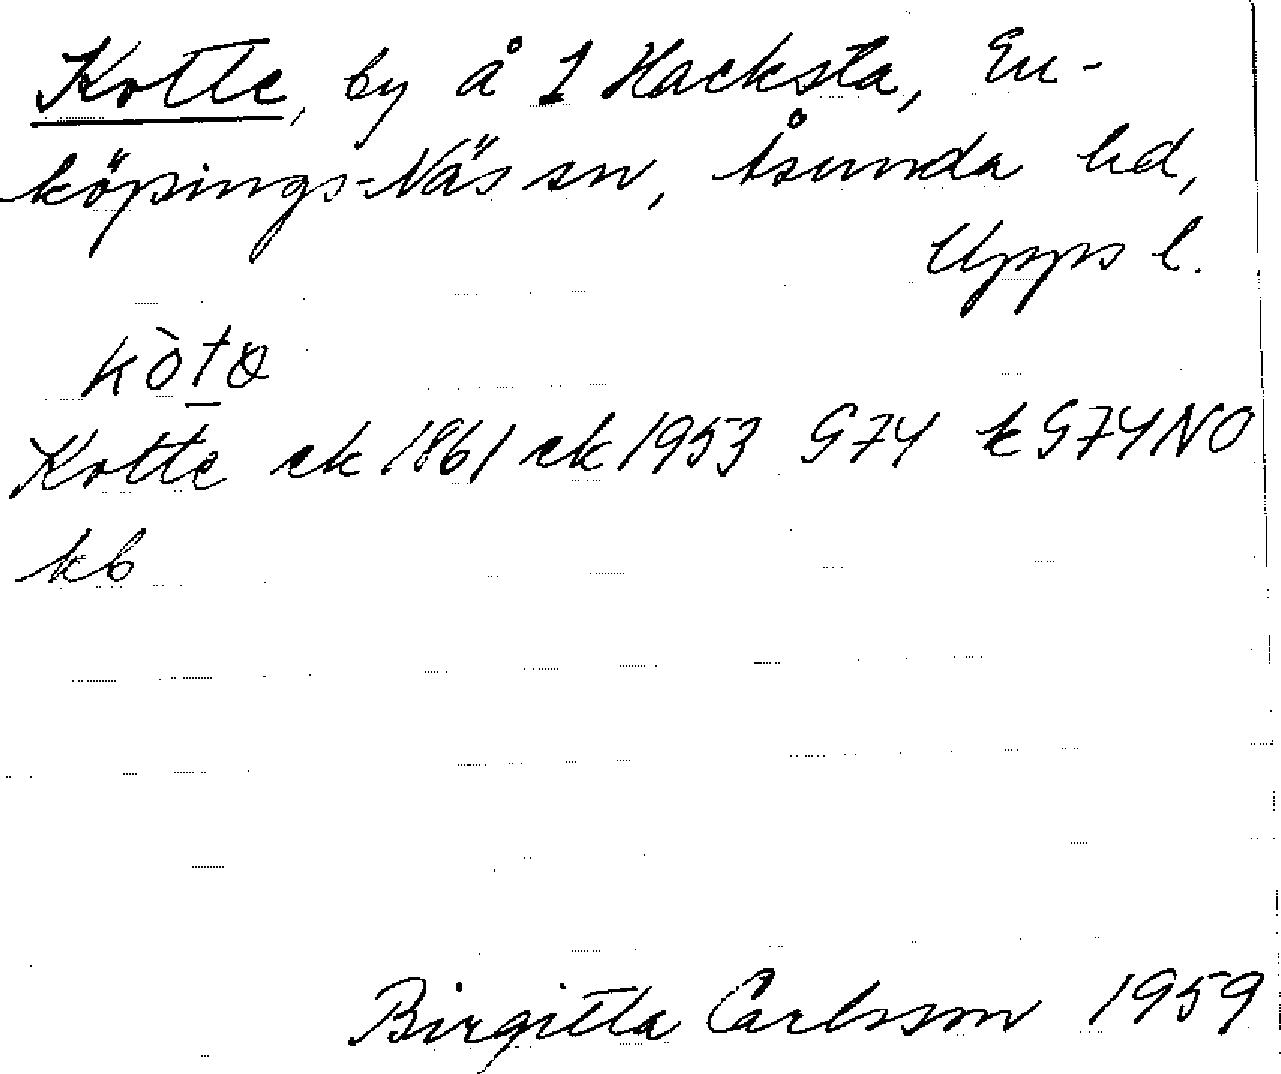 Kotte, by å 1 Hacksta, En-
köpings-Näs sn, Åsunda hd,
Upps l.
kòtə
Kotte ek 1861 ek 1953 G74 tG74NO
kb
Birgitta Carlsson 1959